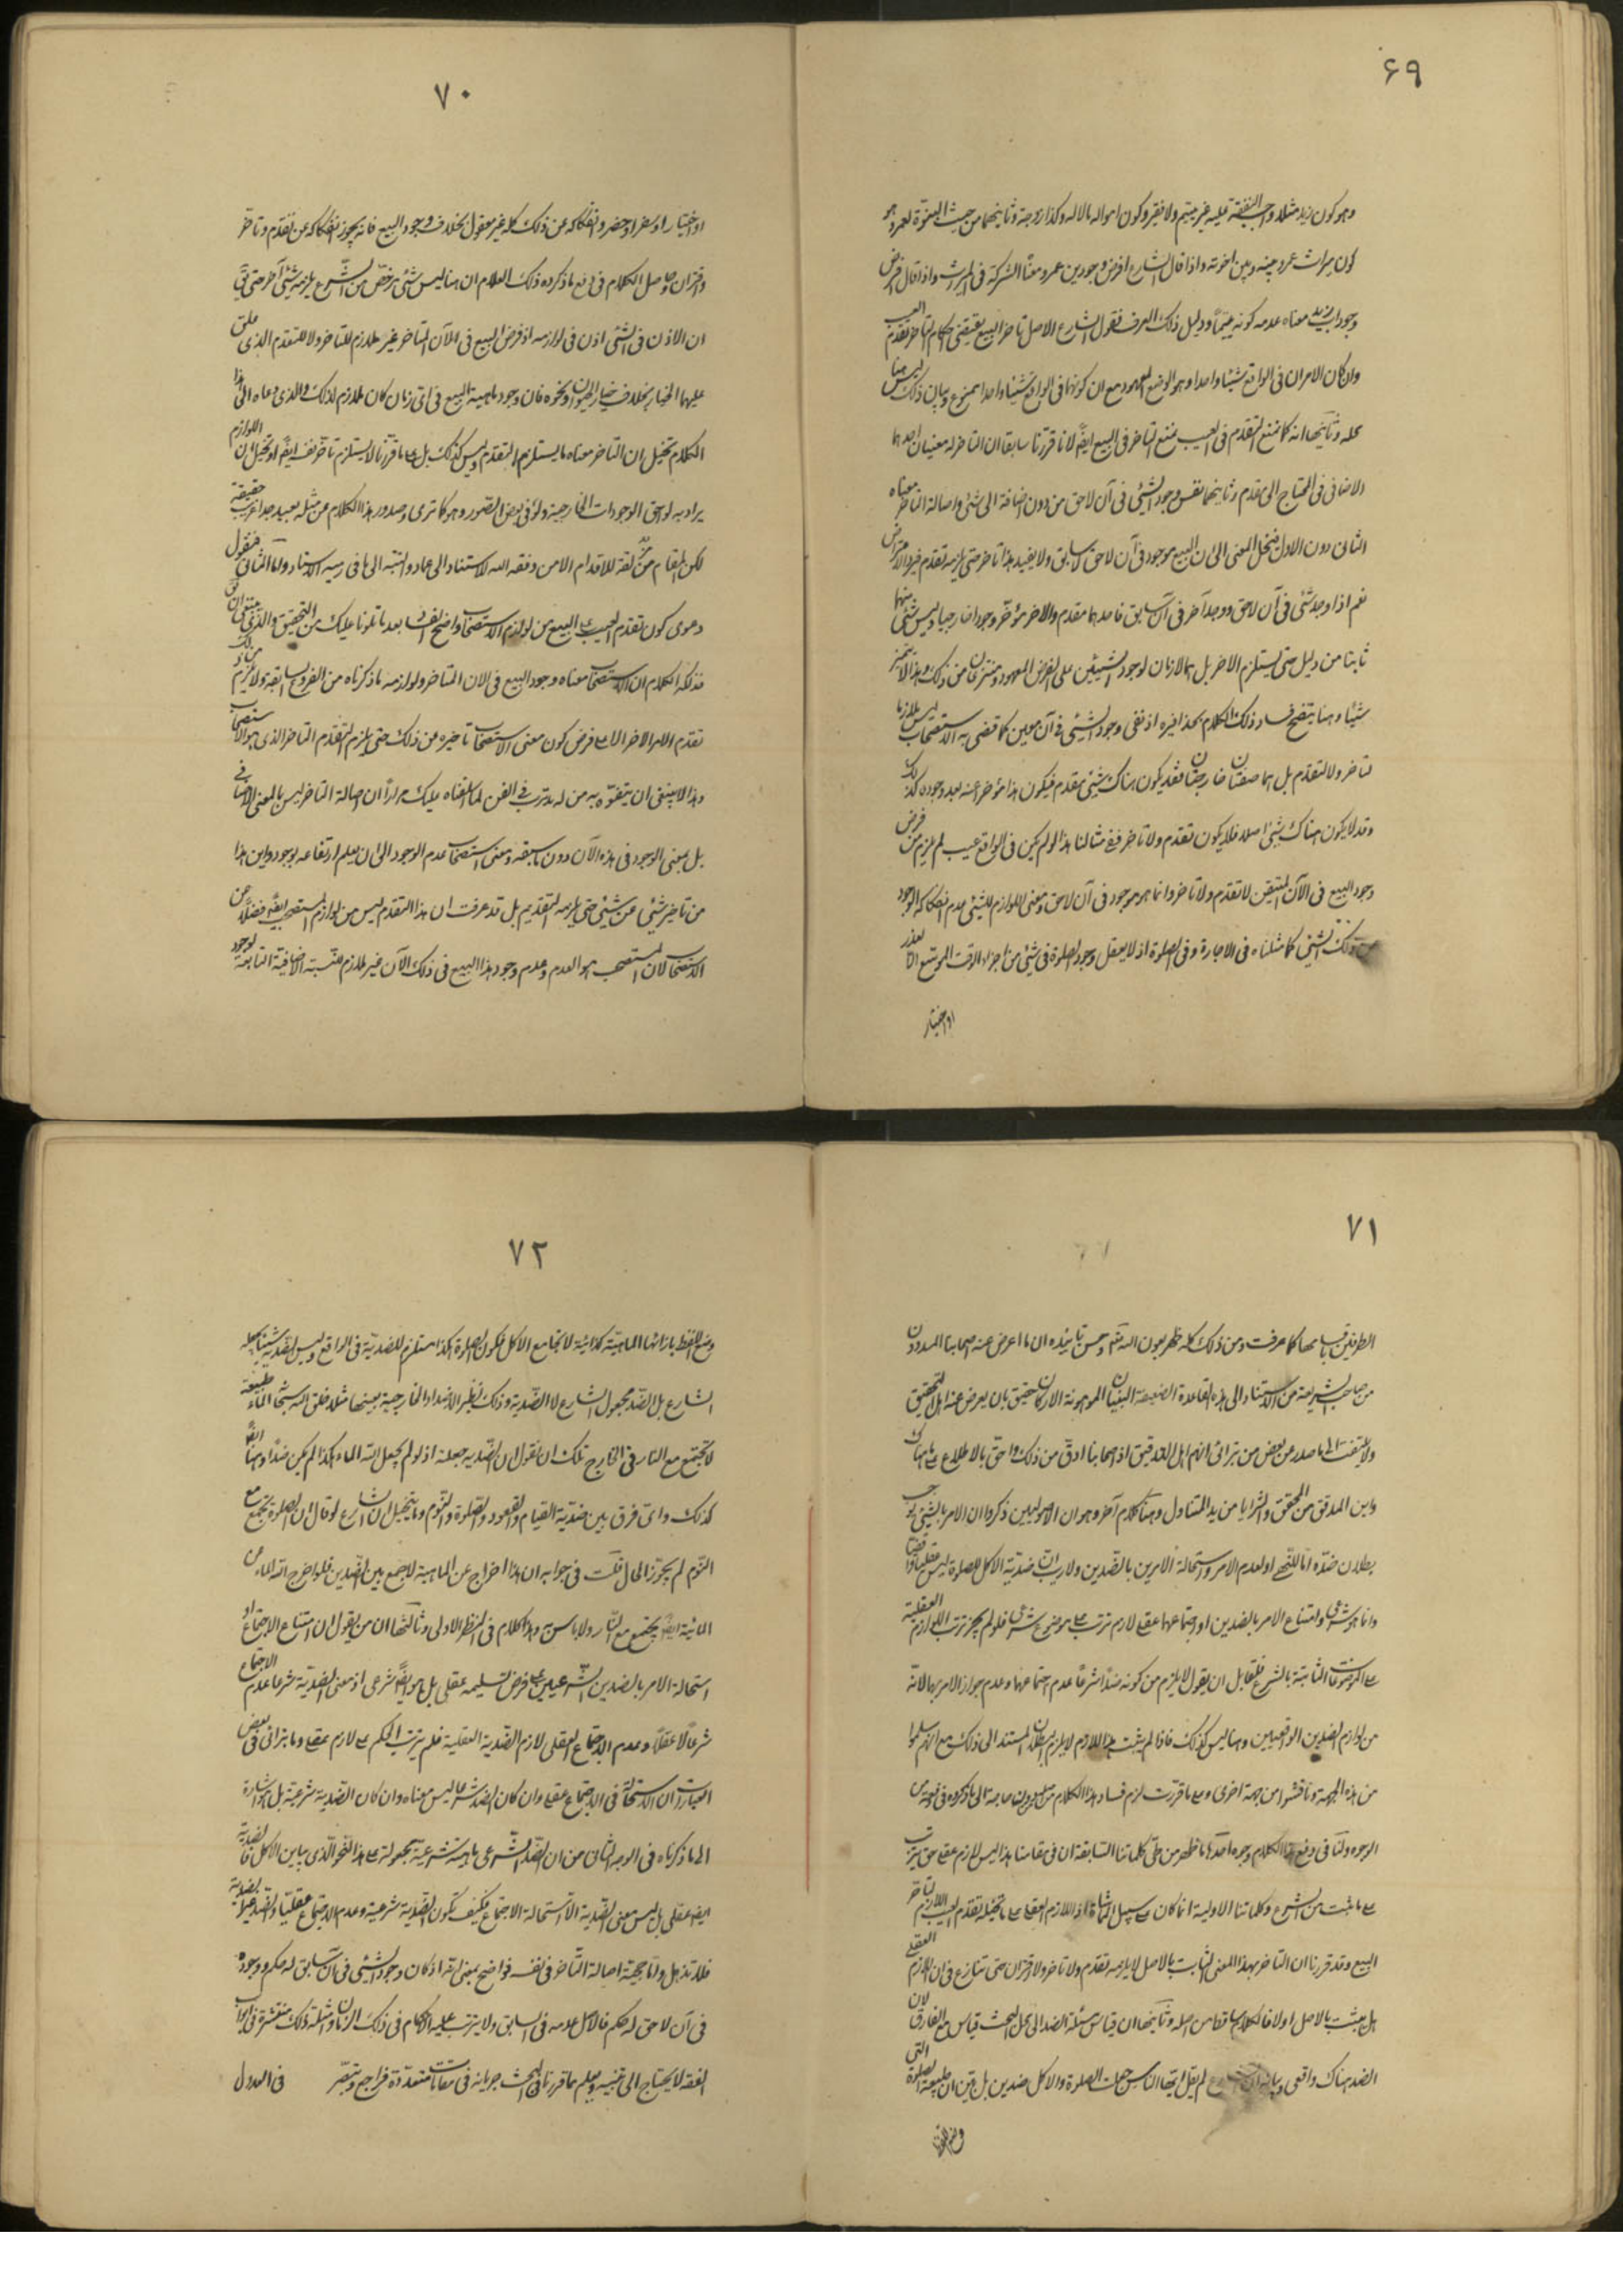 ۶۹
وهو كون زيد مثلا واجب النفقة عليه غير يتيم ولا فقير وكون امواله بالاله وكذا زوجة وثانيهما من حيث البنوّة لعمرو هو
كون ميراث عمرو بينه وبين اخوته واذا قال الشارع افرض وجود بن عمرو معناً الشركة فى الميراث واذا قال افرض
وجود اب زيد معناه عدم كونه يتيماً ودليل ذلك العرف فنقول الشارع الاصل تاخر البيع يقتضى احكام التاخر تقدم العيب
وان كان الامران فى الواقع شيئا واحدا وهو الوضع المعهود مع ان كونهما فى الواقع شيئا واحدا ممنوع وبيان ذلك ليس هنا
محله وثانيها انه كما نمنع التقدم فى العيب نمنع التاخر فى البيع ايضا لانا قررنا سابقا ان التاخر له معنيان احدهما
الاضافى فى المحتاج الى مقدم وثانيهما نفس وجود الشيئ فى آن لاحق من دون اضافة الى شئ واصالة التاخر معناه
الثانى دون الاول فينحل المعنى الى ان البيع موجود فى آن لاحق لا سابق ولا يفيد هذا تاخر حتى يلزمه تقدم غيره الا فرض
نعم اذا وجد شئ فى آن لاحق ووجد آخر فى آن سابق فاحدهما مقدم والاخر مؤخر وجودا خارجيا وليس شئ منهما
ثابتا من دليل حتى يستلزم الاخر بل هما لازمان لوجود الشيئين على الفرض المعهود ومنتزعان من ذلك وهذا لا يثمر
شيئا وهنا يتضح فساد ذلك الكلام بحذافيره اذ نفى وجود الشيئ فى آن معين كما قضى به الاستصحاب ليس ملازما
لتاخر ولا لتقدم بل هما صفتان خارجتان فقد يكون هناك شيئ مقدم فيكون هذا مؤخر اعنه لبعد وجوده كذلك
وقد لا يكون هناك شيئ اصلا فلا يكون تقدم ولا تاخر ففى مثالنا هذا لو لم يكن فى الواقع عيب لم يلزم من فرض
وجود البيع فى الآن المتيقن لا تقدم ولا تاخر وانما هو موجود فى آن لاحق ومعنى اللوازم للشيئ عدم انفكاكه الوجود
عن ذلك الشيئ كما مثلناه فى الاجارة وفى الصلوة اذ لا يعقل وجود الصلوة فى شيئ من اجزاء الوقت الموسّع الا لعذر
او اختيار
۷۰
او اختيار او سفر او حضر وانفكاكه عن ذلك كله غير معقول بخلاف وجود البيع فانه يجوز انفكاكه عن تقدم وتاخّر
واقتران وحاصل الكلام فى دفع ما ذكره ذلك العلام ان هنا ليس شئ مرخّص من الشرع يلزمه شيئ آخر حتى يقى
ان الاذن فى الشئ اذن فى لوازمه اذ فرض البيع فى الآن المتاخر غير ملازم للتاخر ولا للتقدم الذى علق
عليهما الخيار بخلاف خيار الحيوان ونحوه فان وجود ماهية البيع فى اىّ زمان كان ملازم لذلك والذى دعاه الى هذا
الكلام تخيل ان التاخر معناه ما يستلزم التقدم وليس كذلك بل على ما قرّرنا لا يستلزم تاخّر نفسه ايضا او تخيل ان اللوازم
يراد به لواحق الوجودات الخارجية ولو فى بعض الصور وهو كما ترى وصدور هذا الكلام من مثله بعيد جدا غريب حقيقة
لكن المقام مزلقة للاقدام الا من وفقه الله للاستناد الى عماد والتنبّه الى ما فى رسيه الاستاد واما الثانى فنقول
دعوى كون تقدم العيب على البيع من لوازم الاستصحاب واضح الفساد بعد ما تلونا عليك من التحقيق والذى ينبغى ان يق
فذلكة الكلام ان الاستصحاب معناه وجود البيع فى الآن المتاخر ولوازمه ما ذكرناه من الفروع السابقة ولا يلزم من ذلك
تقدم الامر الاخر الا على فرض كون معنى الاستصحاب تاخيره عن ذلك حتى يلزم التقدم التاخر الذى هو الاستصحاب
وهذا لا ينبغى ان يتفوّه به من له تدرب فى الفن لما القيناه عليك مرارًا ان اصالة التاخر ليس بالمعنى الاضافى
بل بمعنى الوجود فى هذه الآن دون سابقه ومعنى استصحاب عدم الوجود الى ان يعلم ارتفاعه بوجود واين هذا
من تاخير شيئ عن شيئ حتى يلزمه التقديم بل قد عرفت ان هذا التقدم ليس من لوازم المستصحب ايضا فضلًا عن
الاستصحاب لان المستصحب هو العدم وعدم وجود هذا البيع فى ذلك الآن غير ملازم للنسبة الاضافية التابعة لوجود
۷۱
الطرفين باقسامها كما عرفت ومن ذلك كله ظهر بعون الله تم وحسن تاييده ان ما اعرض عنه اصحابنا المسددون
من صاحب الشريعة من الاستناد الى هذه القاعدة الضعيفة البنيان الموهونة الاركان حقيق بان يعرض عنه اهل التحقيق
ولا يلتفت الى ما صدر من بعض من يترائى انهم اهل التدقيق اذ اصحابنا ادقّ من ذلك واحق بالاطلاع على ما هناك
واين المدقق من المحقق والثريا من يد المتناول وهنا كلام آخر وهو ان الاصوليين ذكروا ان الامر بالشيئ يوجب
بطلان ضدّه اما للنهى او لعدم الامر واستحالة الامرين بالضدين ولا ريب ان ضدية الاكل للصلوة ليس عقليا واقعيا
وانما هو شرعى وامتناع الامر بالضدين او اجتماعهما عقلى لازم ترتب على موضوع شرعى فلو لم يجز ترتب اللوازم العقلية
على الموضوعات الثابتة بالشرع فلقائل ان يقول لا يلزم من كونه ضدّا شرعًا عدم اجتماعهما وعدم جواز الامر بهما لانّه
من لوازم الضدين الواقعيين وهنا ليس كذلك فاذا لم يثبت هذا اللازم لا يلزم البطلان المستند الى ذلك مع انهم سلّموا
من هذه الجهة وناقشوا من جهة اخرى وعلى ما قرّرت لزم فساد هذا الكلام من دون حاجة الى ما ذكروه فى دفعه من
الوجوه ولنا فى دفع هذا الكلام وجوه احدها ما ظهر من طىّ كلماتنا السابقة ان فى مقامنا هذا ليس لازم عقلى حتى يترتب
على ما ثبت من الشرع وكلماتنا الاولية انما كان على سبيل المماشاة اذ اللازم العقلى على ما تخيّله تقدم العيب اللازم لتاخر
البيع وقد قررنا ان التاخر بهذا المعنى الثابت بالاصل لا يلزمه تقدم ولا تاخر ولا اقتران حتى تنازع فى ان اللازم العقلى
هل يثبت بالاصل او لا فالكلام ساقط من اصله وثانيها ان قياس مسئلة الضد الى محل البحث قياس مع الفارق لان
الضد هناك واقعى وبيانه ان الشارع لم يقل ايّها الناس جعلت الصلوة والاكل ضدين بل بيّن ان طبيعة الصلوة التى
۷۲
وضع اللفظ بازائها الماهية كذائية لا تجامع الاكل فكون الصلوة كذا مستلزم للضدية فى الواقع وليس الضدية شيئا بجعله
الشارع بل الضد مجعول الشارع لا الضّدية وذلك نظير الاضداد الخارجية بعينها مثلا خلق الله سبحانه الماء طبيعة
لا تجتمع مع النار فى الخارج فلك ان تقول ان الضّدية جعلية اذ لو لم يجعل الله الماء كذا لم يكن ضدًا وهنا ايضا
كذلك واى فرق بين ضدّية القيام والقعود والصّلوة والنّوم وما يتخيل ان الشارع لو قال ان الصلوة تجتمع مع
النّوم لم يجوز المحال قلت فى جوابه ان هذا اخراج عن الماهية لا جمع بين الضدين فلو اخرج الله الماء من
المائية ايضا يجتمع مع النّار ولا باس به وهذا الكلام فى النظر الاولى وثالثها ان من يقول ان امتناع الاجتماع او
استحالة الامر بالضدين الشرعيين على فرض تسليمه عقلى بل هو ايضًا شرعى اذ معنى الضديّة شرعًا عدم الاجتماع
شرعًا لا عقلًا وعدم الاجتماع العقلى لازم الضّدية العقلية فلم يترتب الحكم على لازم عقلى وما يترائى فى بعض
العبارات ان الاستحالة فى الاجتماع عقلى وان كان الضد شرعيا ليس معناه وان كان الضّدية شرعية بل هو اشارة
الى ما ذكرناه فى الوجه الثانى من ان الضّد الشرعى ماهيته شرعية مجعولة على هذا النحو الّذى يباين الاكل فالضدية
ايضا عقلى بل ليس معنى الضّدية الا استحالة الاجتماع فكيف تكون الضّدية شرعية وعدم الاجتماع عقليّا والضّد غير الضدية
فلا تذهل واما حجية اصالة التّاخر فى نفسه فواضح بمعنى انه اذا كان وجود الشيئ فى آن سابق له حكم ووجوده
فى آن لاحق له حكم فالاصل عدمه فى السابق ولا يترتب عليه الاحكام فى ذلك الزمان وامثلة ذلك منتشرة فى ابواب
الفقه لا يحتاج الى تنبيه ويعلم مما قررنا فى البحث جريانه فى مقامات متعددة فراجع وتبصّر
فى العدول